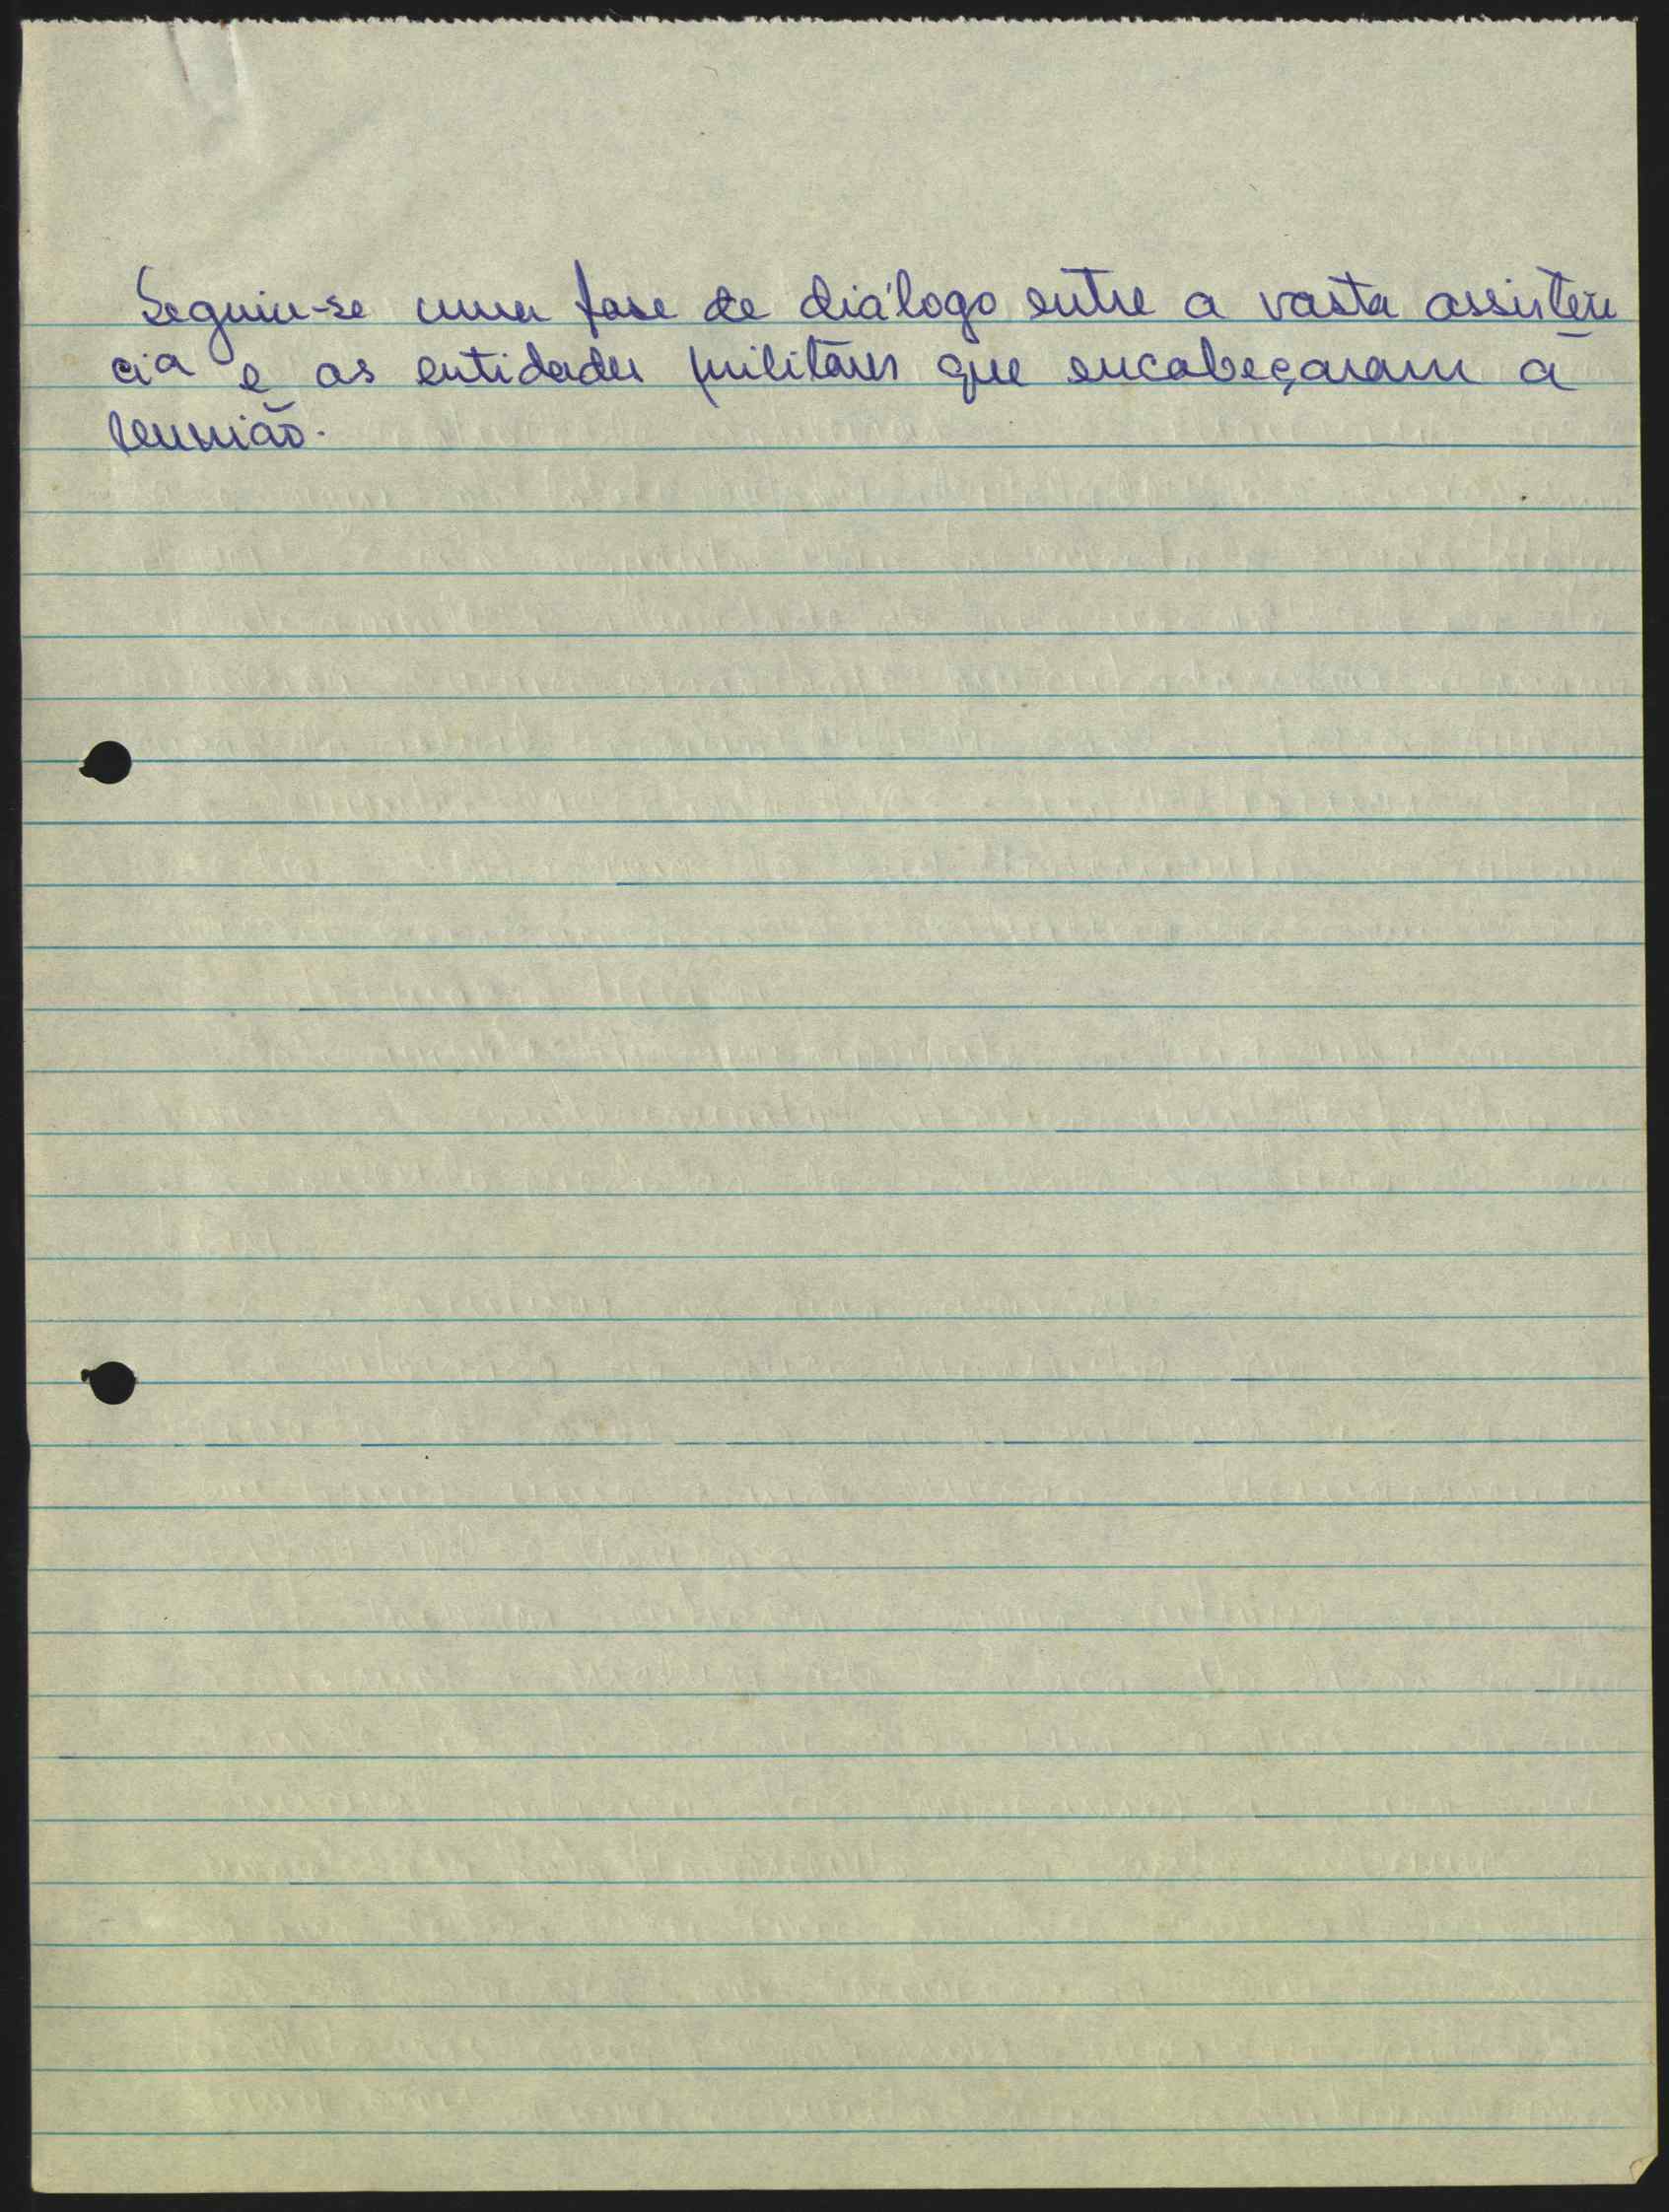 Seguiu-se uma fase de diálogo entre a vasta assistên
cia e as entidades militares que encabeçaram a
reunião.